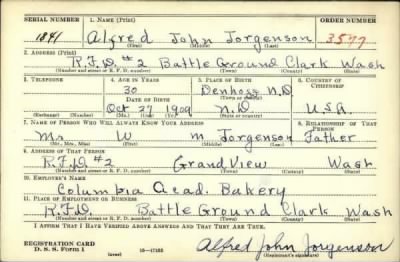 SERIAL NUMBER 1. NAME (Print) ORDER NUMBER
1841 Alfred John Jorgenson 3577
(First) (Middle) (Last)
2. ADDRESS (Print)
R.F.D. #2 Battle Ground Clark Wash
(Number and street or R. F. D. number) (Town) (County) (State)
3. TELEPHONE 4. AGE IN YEARS 5. PLACE OF BIRTH 6. COUNTRY OF CITIZENSHIP
30 Denhoff N.D
DATE OF BIRTH (Town or county)
Oct 27 1909 N.D U.S.A.
(Exchange) (Number) (Mo.) (Day) (Yr.) (State or country)
7. NAME OF PERSON WHO WILL ALWAYS KNOW YOUR ADDRESS 8. RELATIONSHIP OF THAT PERSON
Mr W m Jorgenson Father
(Mr., Mrs., Miss) (First) (Middle) (Last)
9. ADDRESS OF THAT PERSON
R.F.D #2 Grand View Wash
(Number and street or R. F. D. number) (Town) (County) (State)
10. EMPLOYER'S NAME
Columbia Acad. Bakery
11. PLACE OF EMPLOYMENT OR BUSINESS
R.F.D. Battle Ground Clark Wash
(Number and street or R. F. D. number) (Town) (County) (State)
I AFFIRM THAT I HAVE VERIFIED ABOVE ANSWERS AND THAT THEY ARE TRUE.
REGISTRATION CARD
D. S. S. Form 1 (over) Alfred John Jorgenson
(Registrant's signature)